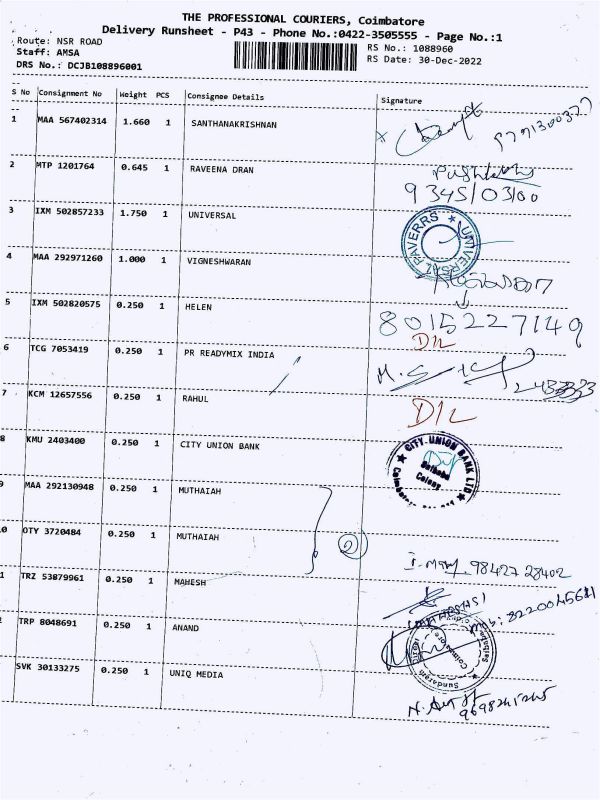 THE PROFESSIONAL COURIERS, Coimbatore
Delivery Runsheet - P43 - Phone No.:0422-3505555 - Page No.:1
Route: NSR ROAD RS No.: 1088960
Staff: AMSA RS Date: 30-Dec-2022
DRS No.: DCJB108896001
S No Consignment No Weight PCS Consignee Details Signature
1 MAA 567402314 1.660 1 SANTHANAKRISHNAN
2 MTP 1201764 0.645 1 RAVEENA DRAN
9345103100
3 IXM 502857233 1.750 1 UNIVERSAL
UNIVERSAL PAVERRS
4 MAA 292971260 1.000 1 VIGNESHWARAN
5 IXM 502820575 0.250 1 HELEN
8015227149
D/L
6 TCG 7053419 0.250 1 PR READYMIX INDIA
7 KCM 12657556 0.250 1 RAHUL
D/L
8 KMU 2403400 0.250 1 CITY UNION BANK
CITY UNION BANK LTD
Colony
9 MAA 292130948 0.250 1 MUTHAIAH
0 OTY 3720484 0.250 1 MUTHAIAH
2
98427 28402
1 TRZ 53879961 0.250 1 MAHESH
2 TRP 8048691 0.250 1 ANAND
Sundaram
Coimbatore
SVK 30133275 0.250 1 UNIQ MEDIA